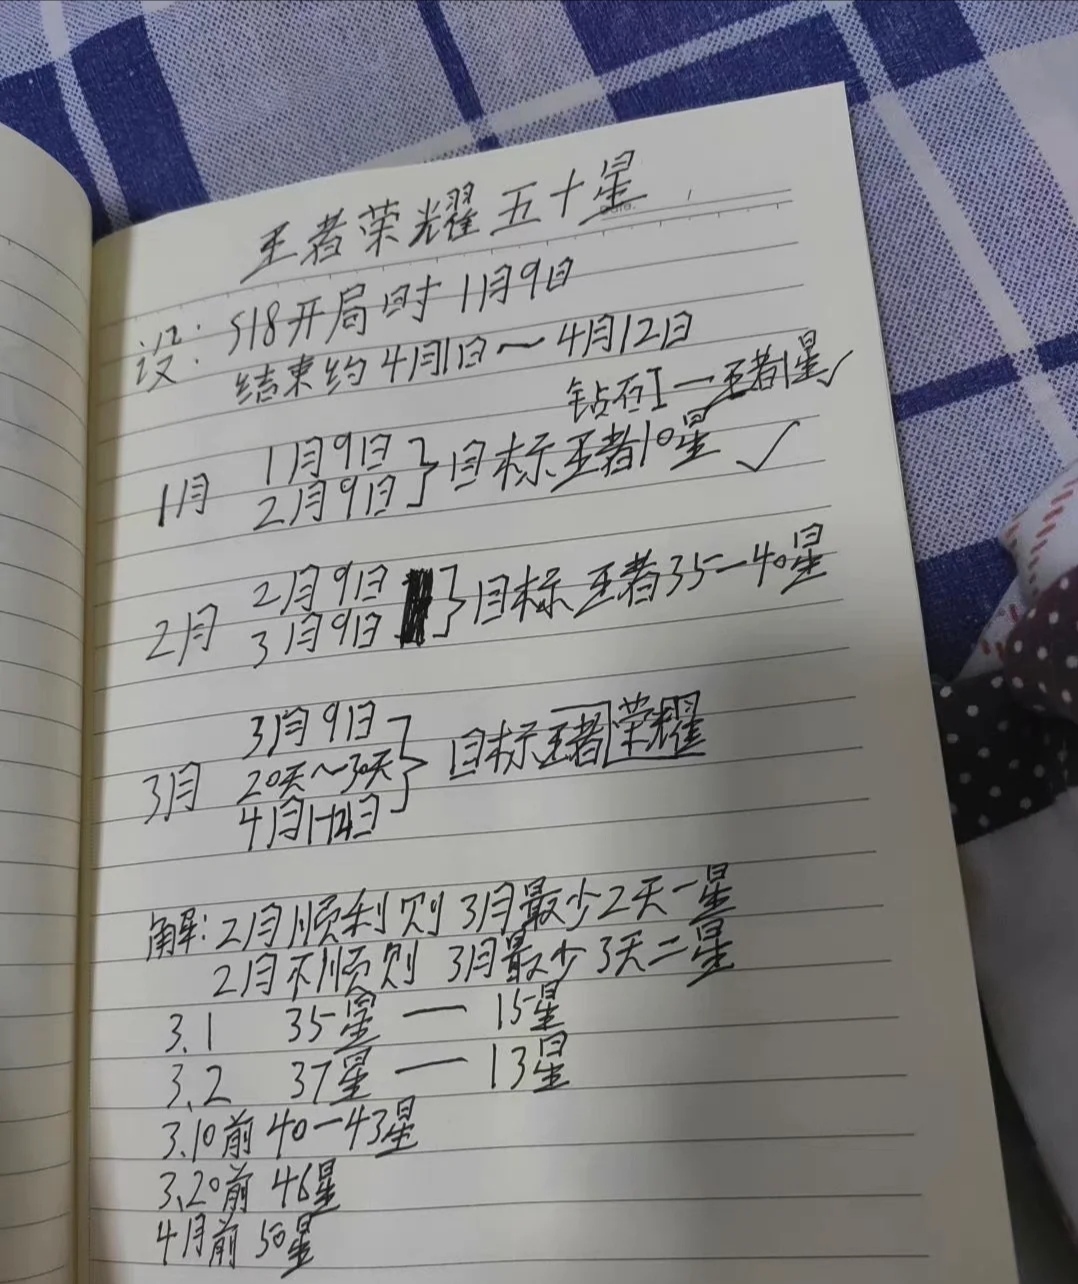 王者荣耀五十星
设: S18开局时 1月9日
结束约4月1日～4月12日
钻石I一王者1星✓
1月 1月9日
2月9日 } 目标王者10星 ✓
2月 2月9日
3月9日 } 目标王者35一40星
3月 3月9日
20天～30天 } 目标王者荣耀
4月1-12日
解:2月顺利则3月最少2天一星
2月不顺则 3月最少3天二星
3.1 35星 — 15星
3.2 37星 — 13星
3.10前 40一43星
3.20前 46星
4月前 50星